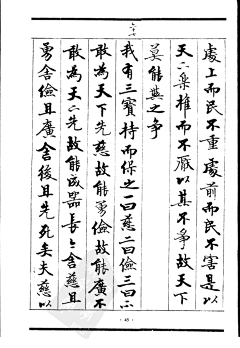 處上而民不重處前而民不害是以
天下樂推而不厭以其不爭故天下
莫能與之爭
六十七
我有三寶持而保之一曰慈二曰儉三曰不
敢為天下先慈故能勇儉故能廣不
敢為天下先故能成器長今舍慈且
勇舍儉且廣舍後且先死矣夫慈以
· 45 ·